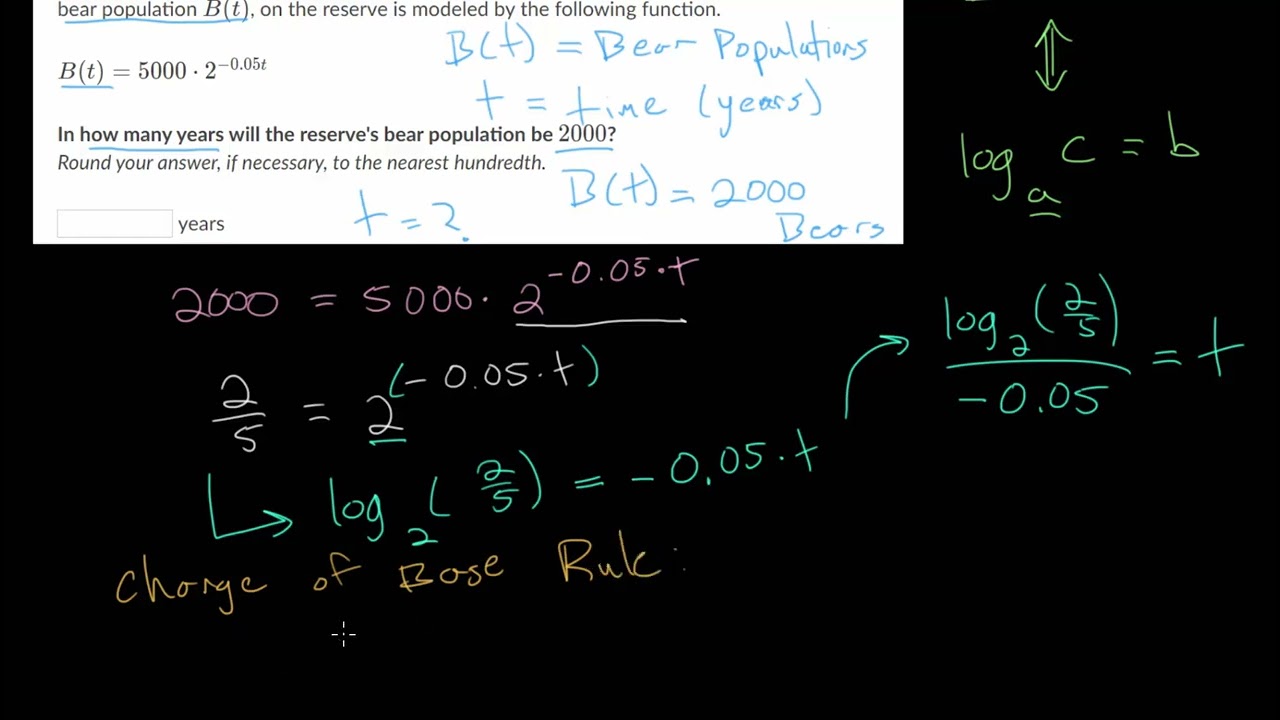 bear population B(t), on the reserve is modeled by the following function.
B(t) = 5000 · 2^{-0.05t}
B(t) = Bear Populations
t = time (years)
In how many years will the reserve's bear population be 2000?
Round your answer, if necessary, to the nearest hundredth.
B(t) = 2000
Bears
t = ?
years
log_a c = b
2000 = 5000 · 2^{-0.05·t}
2/5 = 2^{(-0.05·t)}
log_2 (2/5) = -0.05·t
log_2 (2/5) / -0.05 = t
Change of Base Rule: